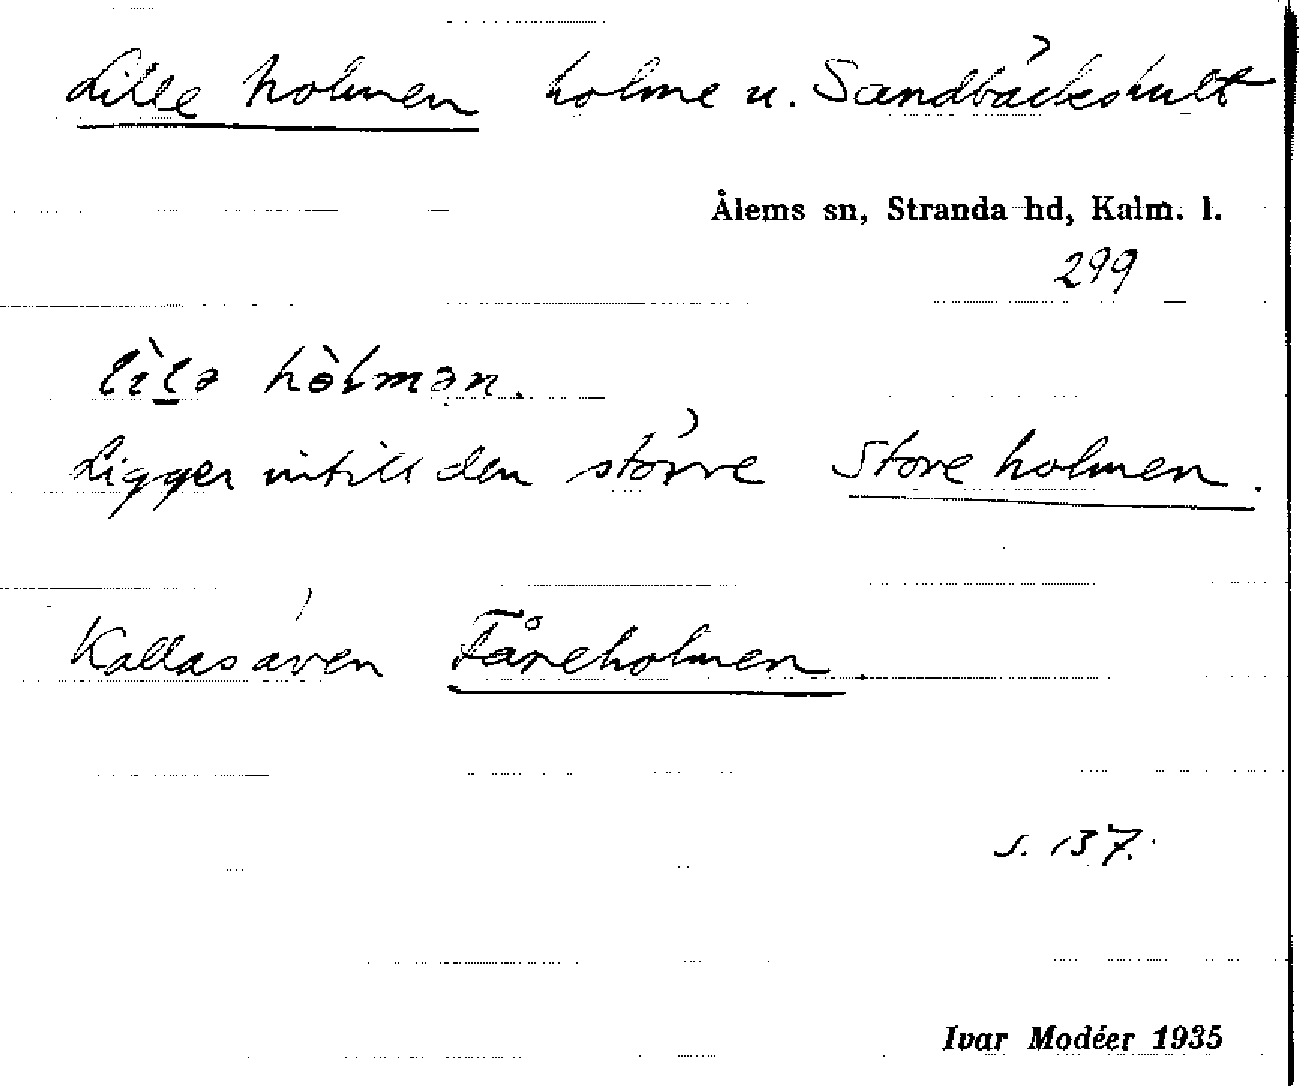 Lille holmen holme u. Sandbäckshult
Ålems sn, Stranda hd, Kalm. l.
299
lìlə hòlmən.
Ligger intill den större Store holmen.
Kallas även Fåreholmen.
s. 137.
Ivar Modéer 1935